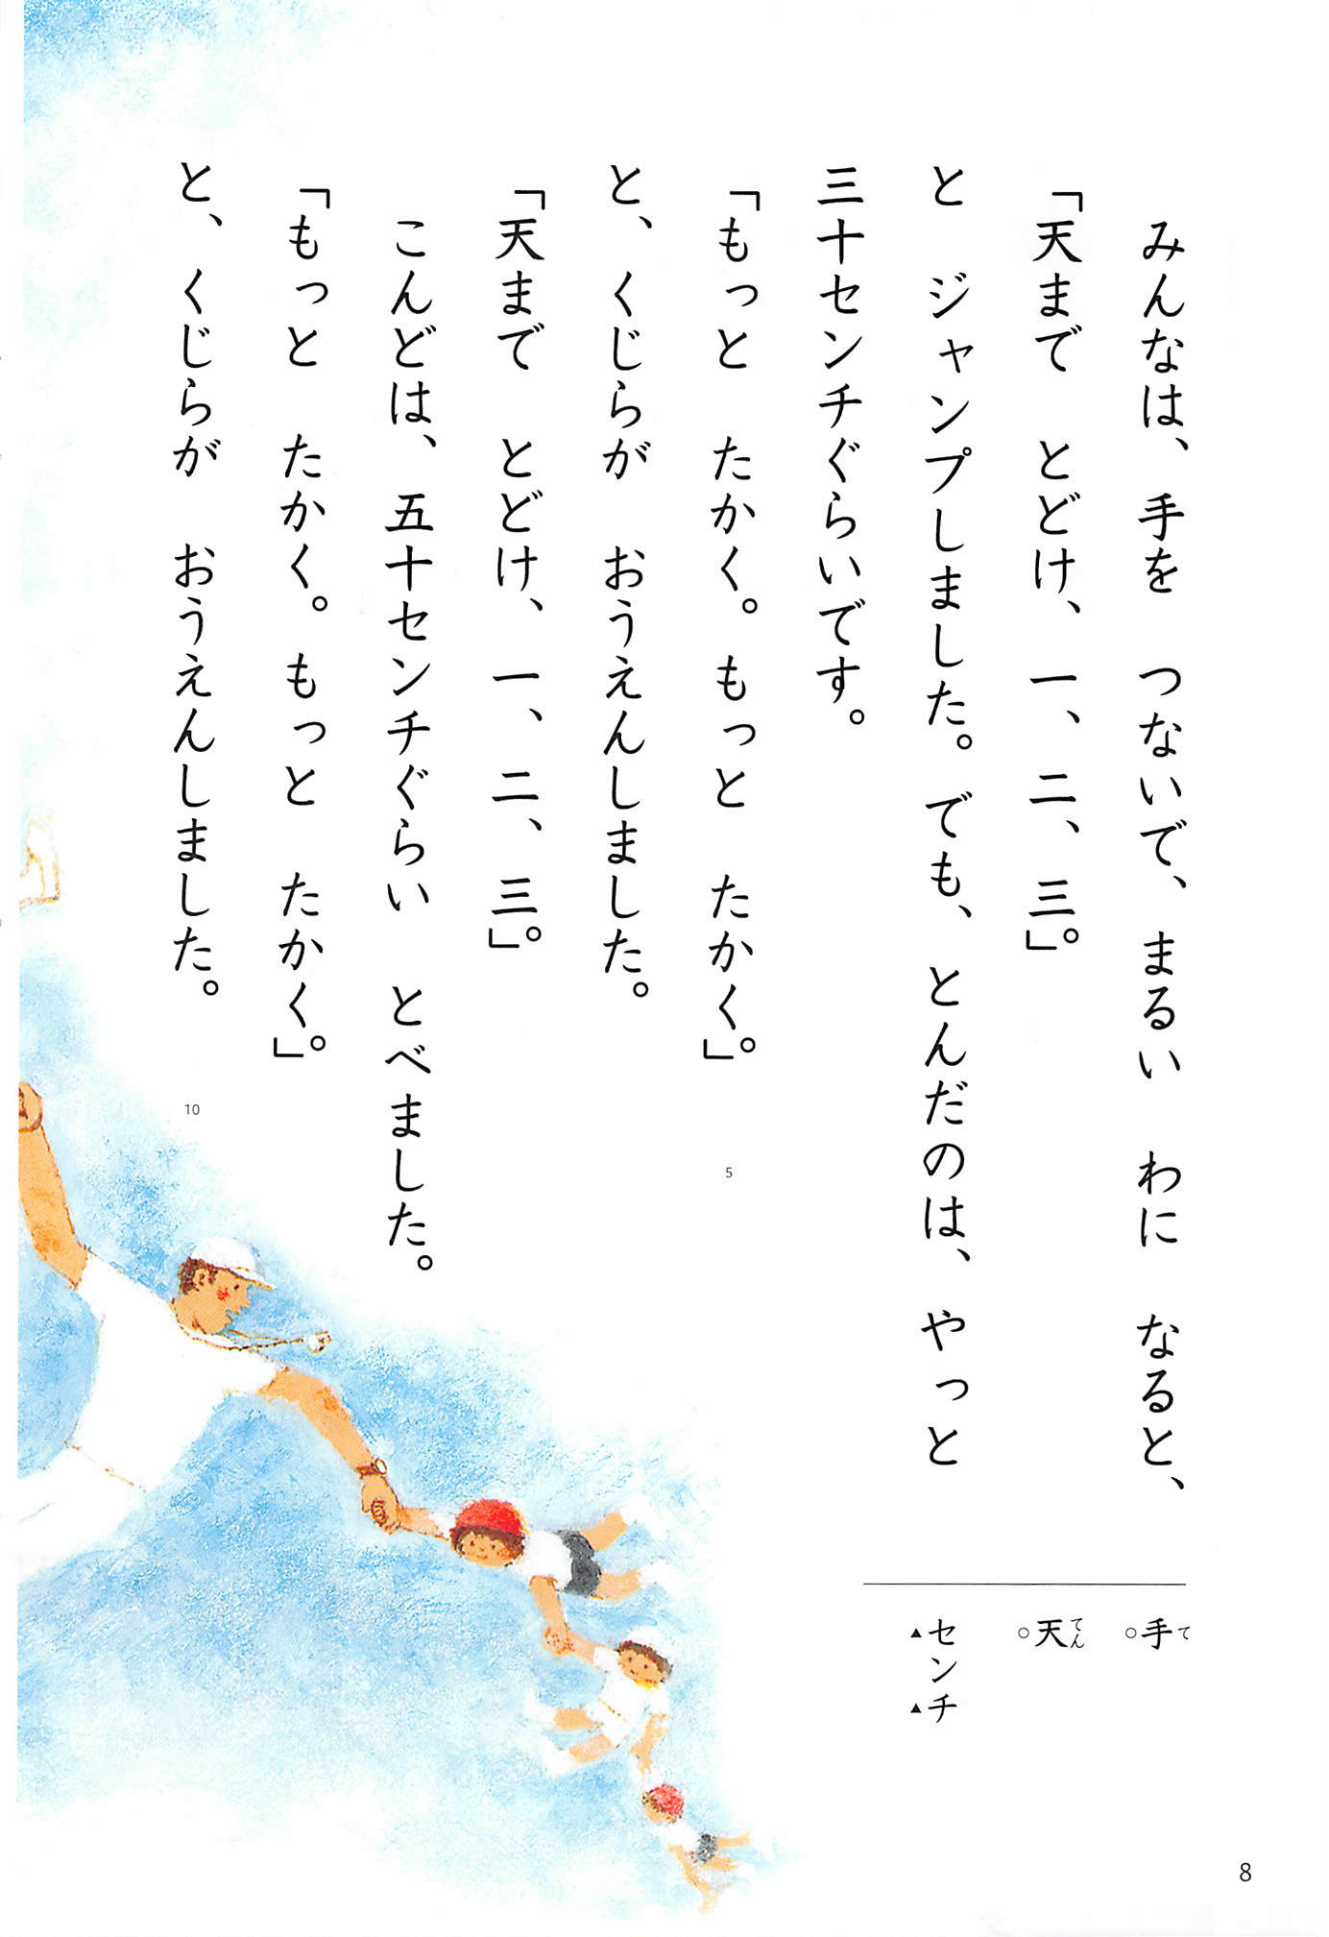 みんなは、手を　つないで、まるい　わに　なると、
「天まで　とどけ、一、二、三。」
と　ジャンプしました。でも、とんだのは、やっと
三十センチぐらいです。
「もっと　たかく。もっと　たかく。」
と、くじらが　おうえんしました。
「天まで　とどけ、一、二、三。」
こんどは、五十センチぐらい　とべました。
「もっと　たかく。もっと　たかく。」
と、くじらが　おうえんしました。
5
10
○手て
○天てん
▲セン▲チ
8